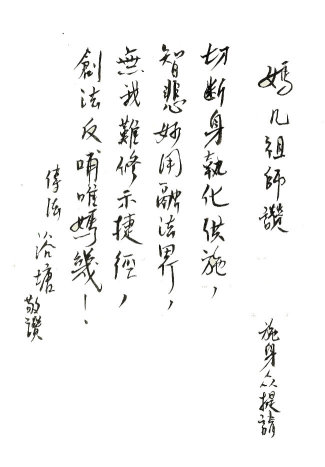 媽凡祖師讚
施身众提請
切断身執化供施,
智悲妙用融法界,
無我難修示捷徑,
創法反哺唯媽幾!
傳法 浴塘 敬讚